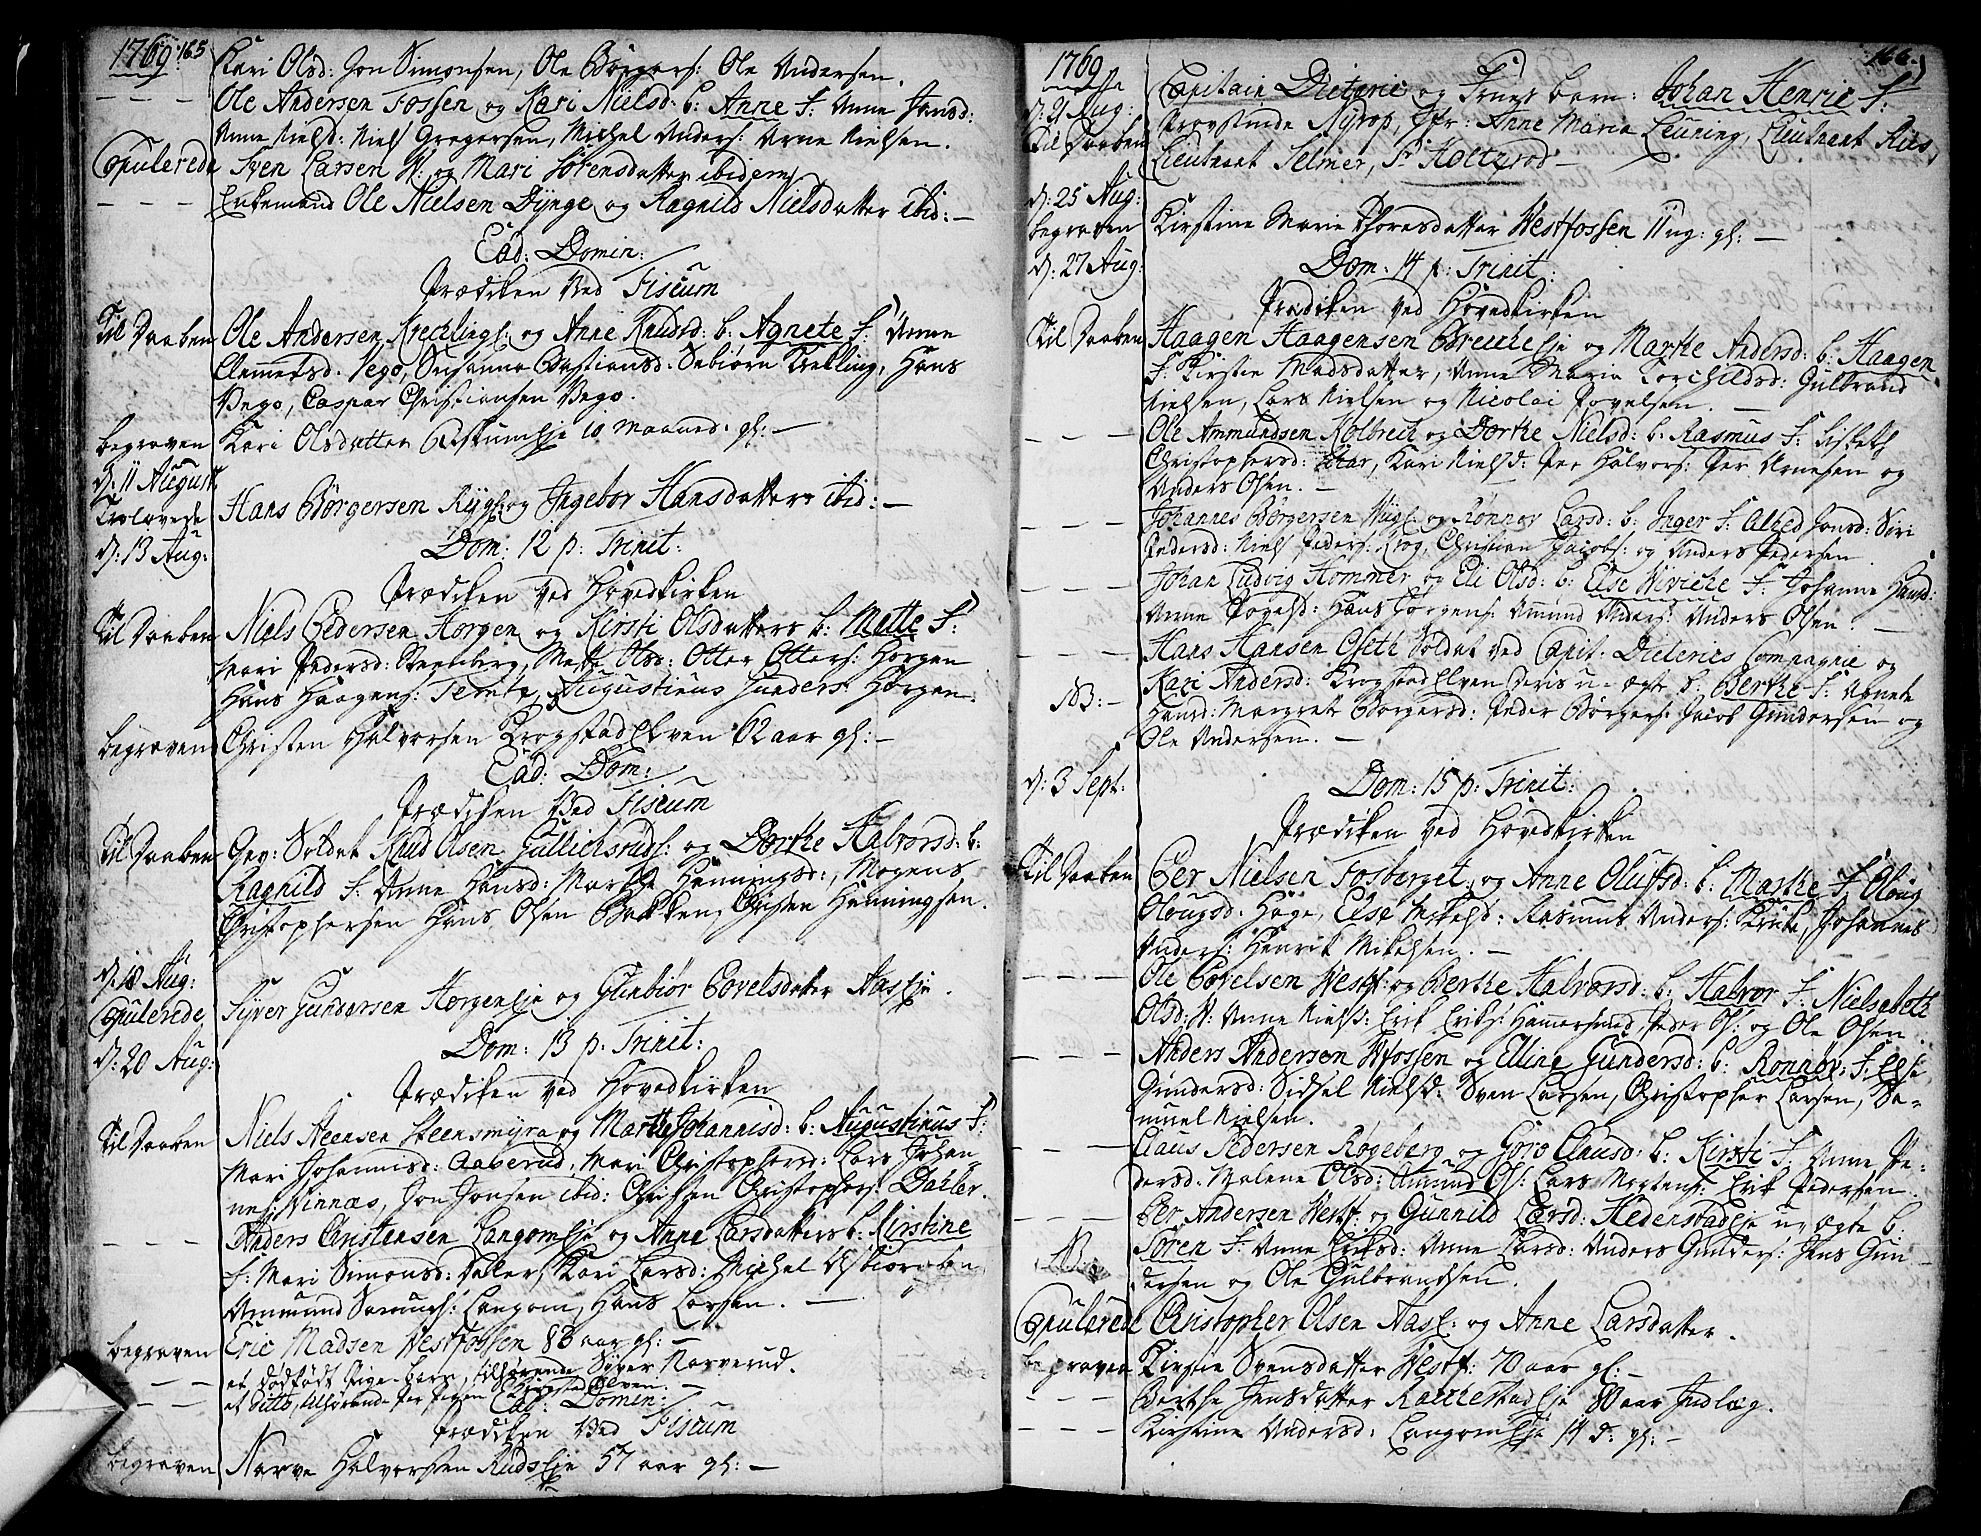 1769. 165
Kari Olsd: Jon Simonsen, Ole Børgers: Ole Andersen.
- - - Ole Andersen Fossen og Kari Nielsd: b: Anne F: Anne Jensd:
Anne Nielsd: Niels Gregersen, Michel Anders: Arne Nielsen.
Copulerede Sven Larsen W: og Mari Sørensdatter ibidem
- - - Enkemand Ole Nielsen Dynge og Ragnild Nielsdatter ibid: -
Ead: Domin:
Prædiken Ved Fiscum
Til Daaben Ole Andersen Krechling: og Anne Knudsd: b: Agnete F: Anne
Clemmetsd: Vego, Susanna Bastiansd: Sebiørn Krekling, Hans
Vego, Caspar Christiansen Vego.
begraven Kari Olsdatter Eje 10 maaned: gl: -
d: 11 August
Trolovede Hans Børgersen Ryg: og Ingebor Hansdatter ibid: -
d: 13 Aug: Dom: 12 p: Trinit:
Prædiken ved Hovedkirken
Til Daaben Niels Pedersen Horgen og Kirsti Olsdatters b: Mette F:
Mari Pedersd: Stenberg, Mette Olsd: Otter Otters: Horgen
Hans Haagens: Temte, Augustinus Gunders: Horgen.
begraven Christen Halvorsen Krogstadelven 62 aar gl: -
Ead: Dom:
Prædiken Ved Fiscum
Til Daaben Gev: Soldat Knud Olsen Gullichsrud: og Dorthe Halvorsd: b:
Ragnild F: Anne Hansd: Marthe Henningsd:, Mogens
Christophersen Hans Olsen Bakken, Christen Henningsen.
d: 18 Aug:
Copulerede Syver Gundersen Horgen Eje og Gunbiør Povelsdatter Aas Eje.
d: 20 Aug: Dom: 13 p: Trinit:
Prædiken ved Hovedkirken
Til Daaben Niels Steensen Steensmyra og Marthe Johannisd: b: Augustinus F:
Mari Johannisd: Aaserud, Mari Christophersd: Lars Johan
nes: Vinnæs, Jon Jonsen ibid: Christen Christophers: Dahler.
- - - Anders Christensen Langom Eje og Anne Larsdatters b: Kirstine
F: Mari Simonsd: Dahler, Kari Larsd: Michel
Ammund Langom, Hans Larsen. -
begraven Eric Madsen Westfossen 83 aar gl: -
- - et dødfødt Pige-barn, tilhørende Syver Narverud.
- - et Ditto, tilhørende Per Krogstadelven. -
Ead: Domin:
Prædiken Ved Fiscum
begraven Narve Halvorsen Ruds Eje 57 aar gl: -
1769 166.
d: 21 Aug: Capitain Dieteric og Frues barn: Johan Henric F:
Til Daaben Provstinde Nyrop, Jfr: Anne Maria Leuning, Lieutnant Riis,
Lieutnant Selmer, Sr Holtzrod -
d: 25 Aug:
begraven Kirstine Marie Thoresdatter Westfossen 11 ug: gl: -
d: 27 Aug: Dom: 14 p: Trinit:
Prædiken ved Hovedkirken
Til Daaben Haagen Haagensen Breiche Eje og Marthe Andersd: b: Haagen
F: Kirstie Madsdatter, Anne Maria Torchildsd: Gulbrand
Nielsen, Lars Nielsen og Nicolai Povelsen. -
- - - Ole Ammundsen Kolbrech og Dorthe Nielsd: b: Rasmus F: Lisbeth
Christophersd: Kari Nielsd: Per Halvors: Per Arnesen og
Anders Olsen. -
- - - Johannes Børgersen Wiig: og Rønnov Larsd: b: Inger F: Alhed Jonsd: Siri
Pedersd: Niels Peders: Krog, Christian Jacobs: og Anders Pedersen
- - - Johan Ludvig Hommer og Eli Olsd: b: Else Wiviche F: Johanne Hansd:
Anne Hans Jørgens: Amund Anders: Anders Olsen -
- - - Hans Hansen Oseth Soldat ved Capit: Dieterics Compagnie og
NB: - Kari Andersd: Krogstadelven deris u-ægte b: Berthe F: Agnete
Hansd: Margrete Børgersd: Peder Børgers: Jacob Gundersen og
Ole Andersen. -
d: 3 Sept: Dom: 15 p: Trinit:
Prædiken ved Hovedkirken
Til Daaben Per Nielsen Fosberget: og Anne Olufsd: b: Marthe F: Oloug
Olougsd: Høge, Else Mikelsd: Rasmus Anders: Johannes
Anders: Henrik Mikelsen. -
- - - Ole Povelsen Westf: og Berthe Halvorsd: b: Halvor F: Nielsebeth
Olsd: W: Anne Nielsd: Erik Eriks: Hammersmed, Peder Ols: og Ole Olsen.
- - - Anders Andersen Wfossen og Elline Gundersd: b: Ronnov: F: Else
Gundersd: Sidsel Nielsd: Sven Larsen, Christopher Larsen, Sa-
muel Nielsen.
- - Claus Pedersen Røgeberg og Goro Clausd: b: Kirsti F: Anne Pe-
dersd: Malene Olsd: Amund Ols: Lars Mortens: Erik Pedersen.
- - - Per Andersen Westf: og Gunnild Larsd: Hedenstad Eje u-ægte b:
NB. Søren F: Anne Eriksd: Anne Larsd: Anders Gunders: Jens Gun
dersen og Ole Gulbrandsen.
Copulerede Christopher Olsen Aas: og Anne Larsdatter.
begraven Kirstie Svensdatter Westf: 70 aar gl: -
- - - Berthe Jensdatter Eje 80 aar Indlæg.
- - - Kirstine Andersd: Langom Eje 14 d: gl: -